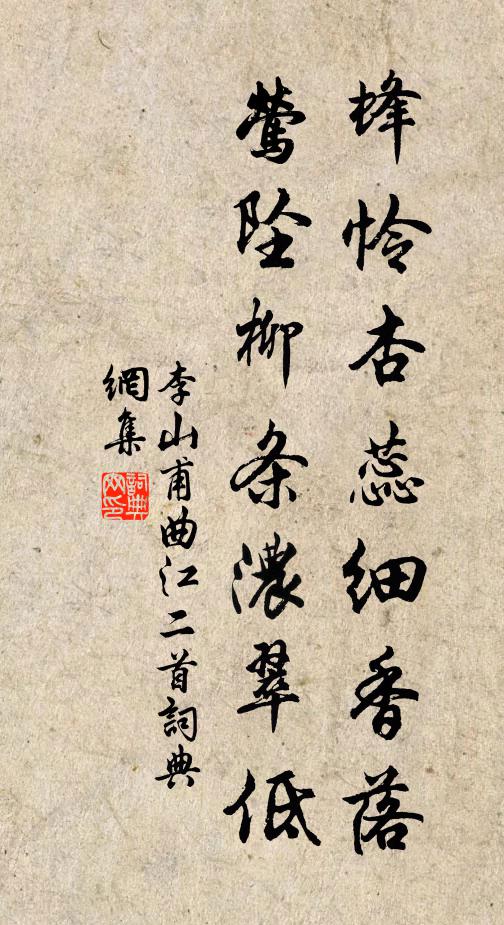 蜂怜杏蕊细香落
莺坠柳条浓翠低
李山甫曲江二首词典
网集
词典网印